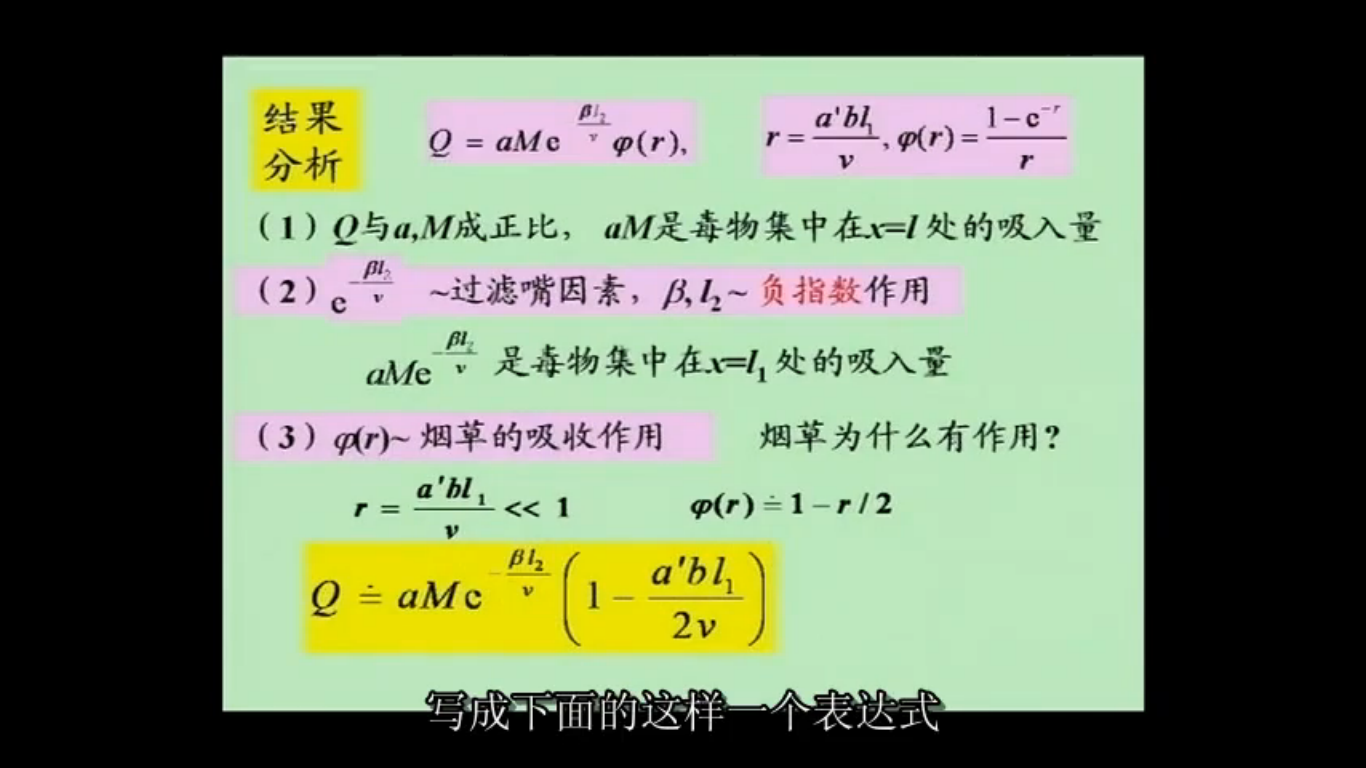 结果分析
Q = aMe^{-βl₂/v} φ(r), r = a'bl₁/v, φ(r) = (1-e^{-r})/r
（1）Q与a,M成正比， aM是毒物集中在x=l 处的吸入量
（2）e^{-βl₂/v} ~过滤嘴因素，β, l₂ ~ 负指数作用
aMe^{-βl₂/v} 是毒物集中在x=l₁ 处的吸入量
（3）φ(r)~ 烟草的吸收作用 烟草为什么有作用?
r = a'bl₁/v << 1 φ(r) ≐ 1 – r / 2
Q ≐ aMe^{-βl₂/v} (1 – a'bl₁/2v)
写成下面的这样一个表达式